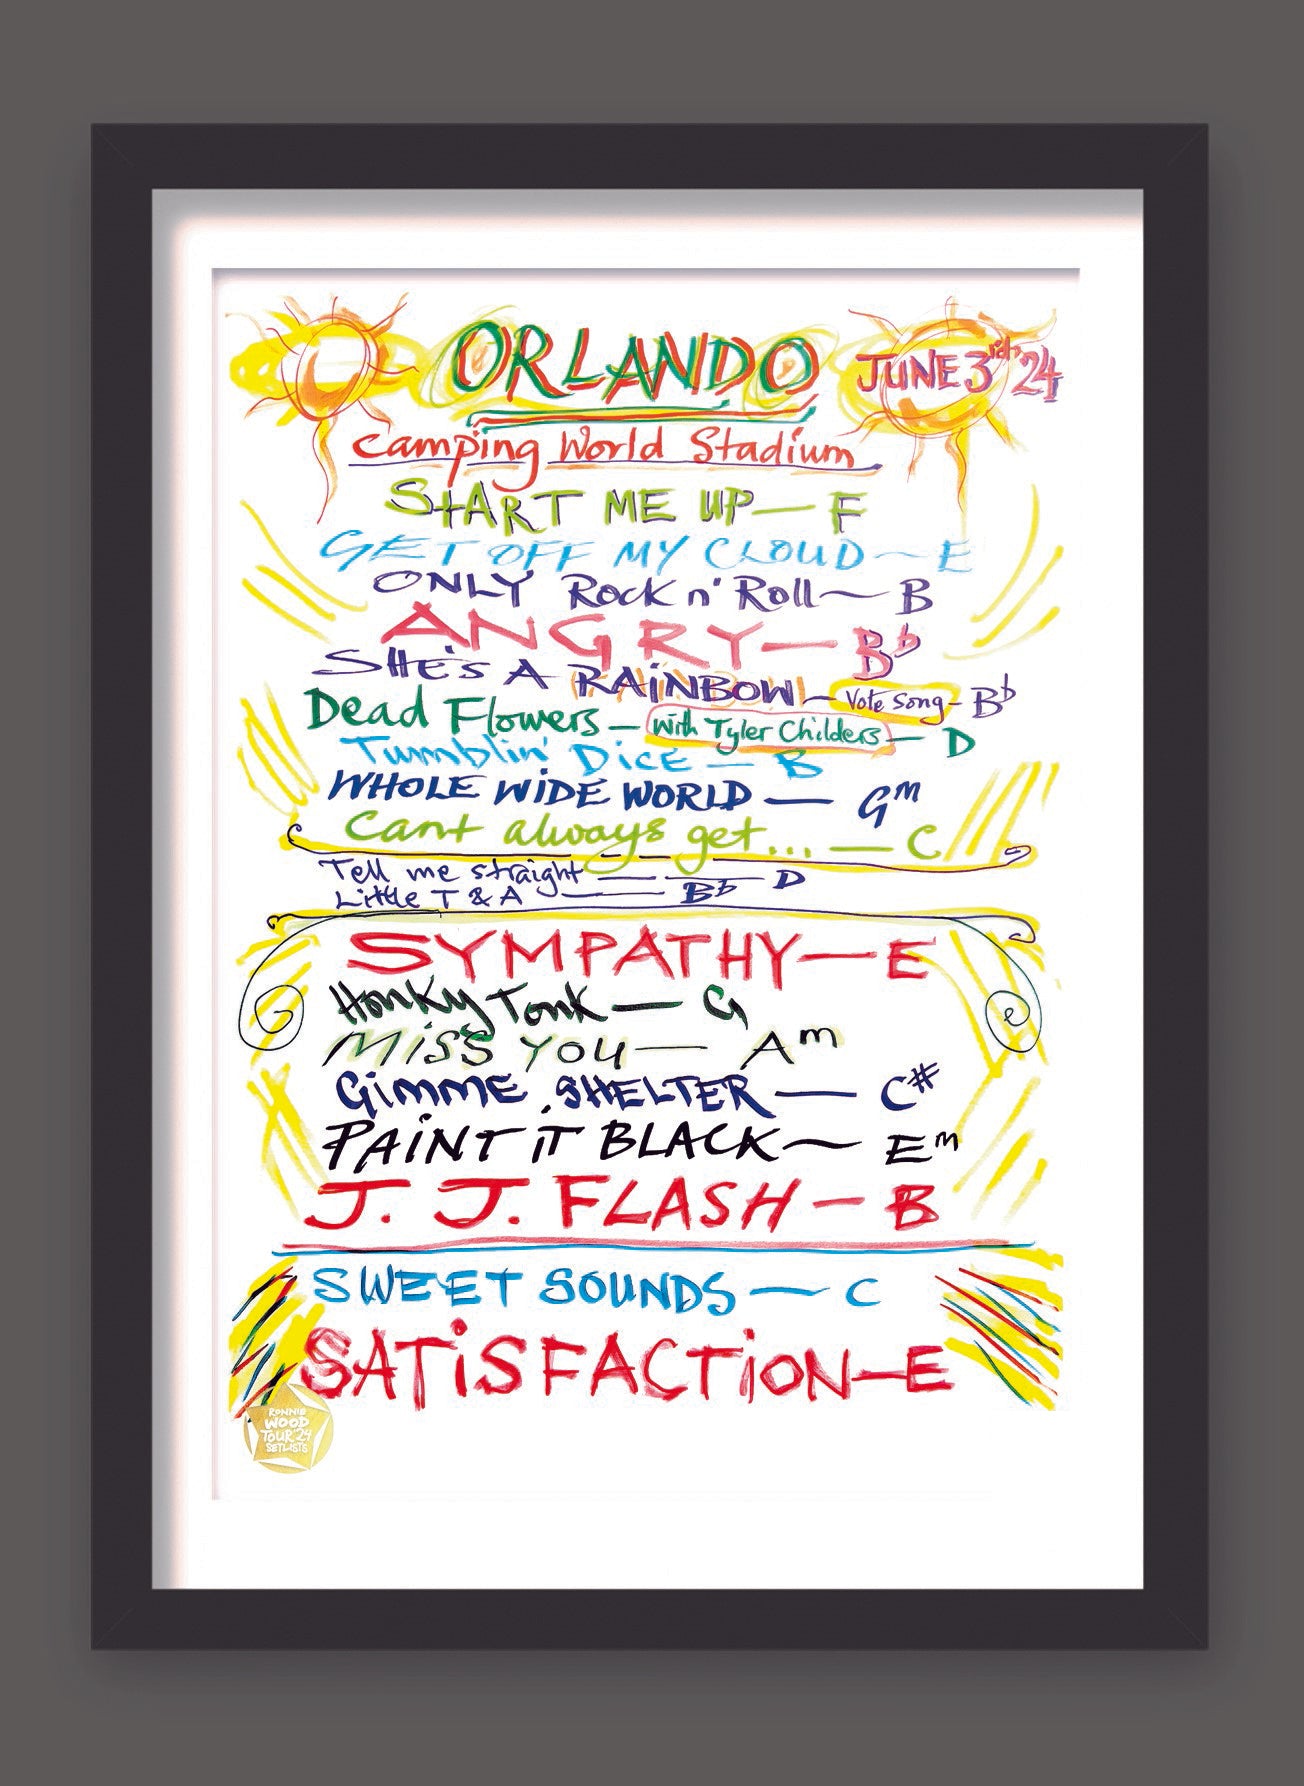 ORLANDO JUNE 3rd, '24
Camping World Stadium
START ME UP — F
GET OFF MY CLOUD ~ E
ONLY Rock n' Roll ~ B
ANGRY — Bb
SHE'S A RAiNBOW — Vote Song - Bb
Dead Flowers — with Tyler Childers — D
Tumblin' DiCE — B
WHOLE WiDE WORLD — Gm
Cant always get... — C
Tell me straight — D
Little T & A — Bb
SYMPATHY — E
Honky Tonk — G
MiSS YOU — Am
GiMME SHELTER — C#
PAiNT iT BLACK ~ Em
J. J. FLASH — B
SWEET SOUNDS — C
SATiSFACTiON — E
RONNIE
WOOD
TOUR '24
SETLISTS